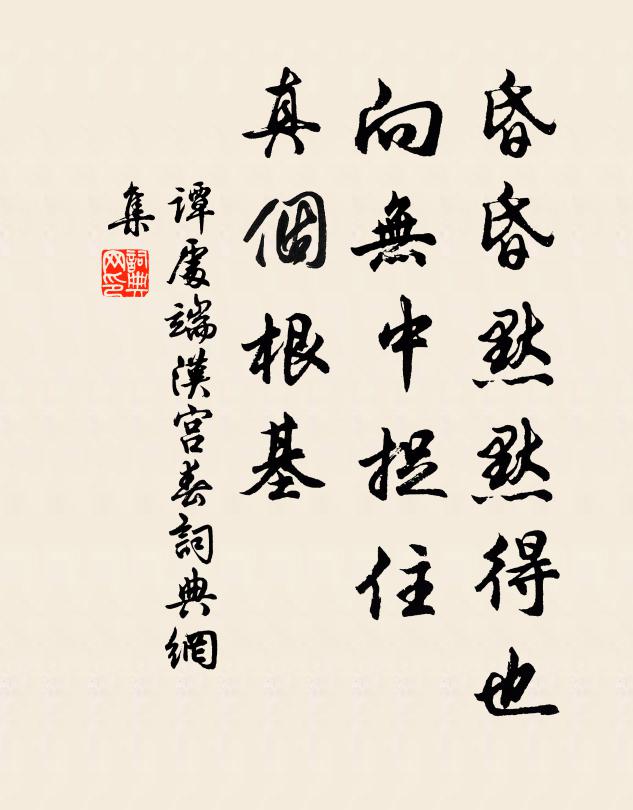 昏昏默默得也
向無中捉住
真個根基
譚處端漢宮春詞典網
集
詞典網印